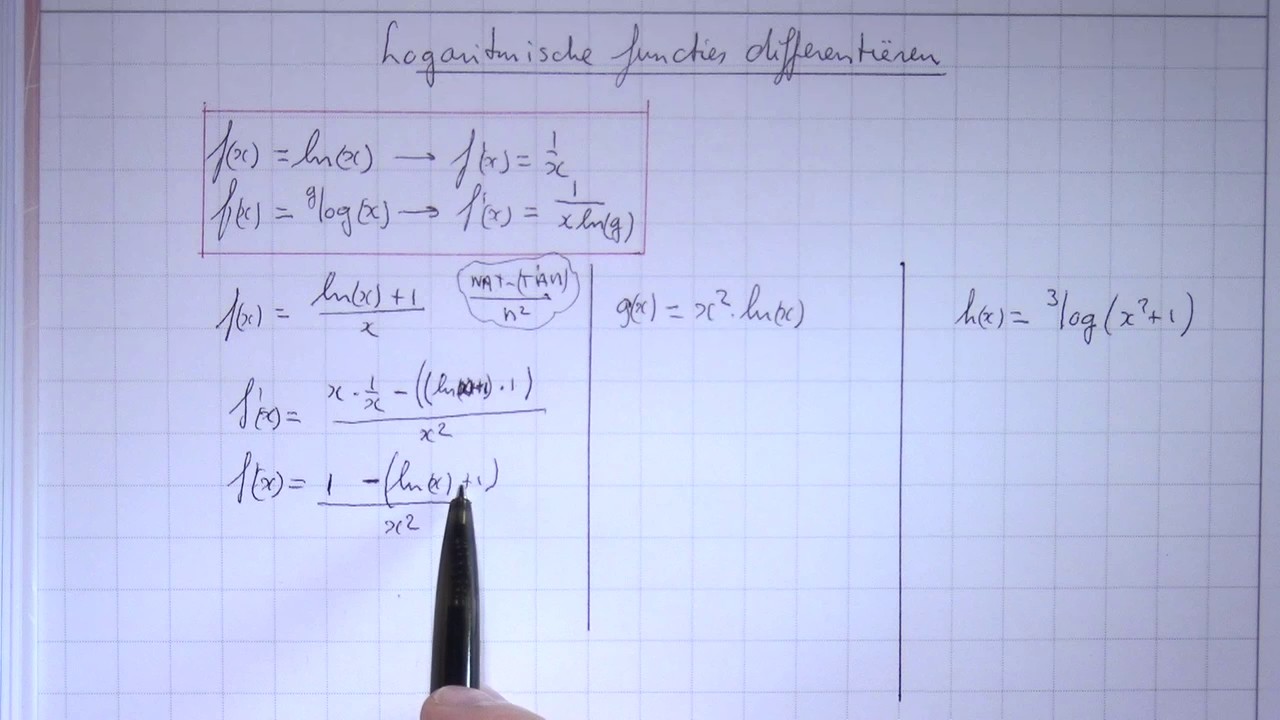 Logaritmische functies differentiëren
f(x) = ln(x) → f'(x) = 1/x
f(x) = ᵍlog(x) → f'(x) = 1/(x ln(g))
f(x) = (ln(x) + 1)/x
(NAT - (TAN))/n²
f'(x) = (x · 1/x - ((ln(x)+1) · 1))/x²
f'(x) = (1 - (ln(x) + 1))/x²
g(x) = x² · ln(x)
h(x) = ³log(x² + 1)